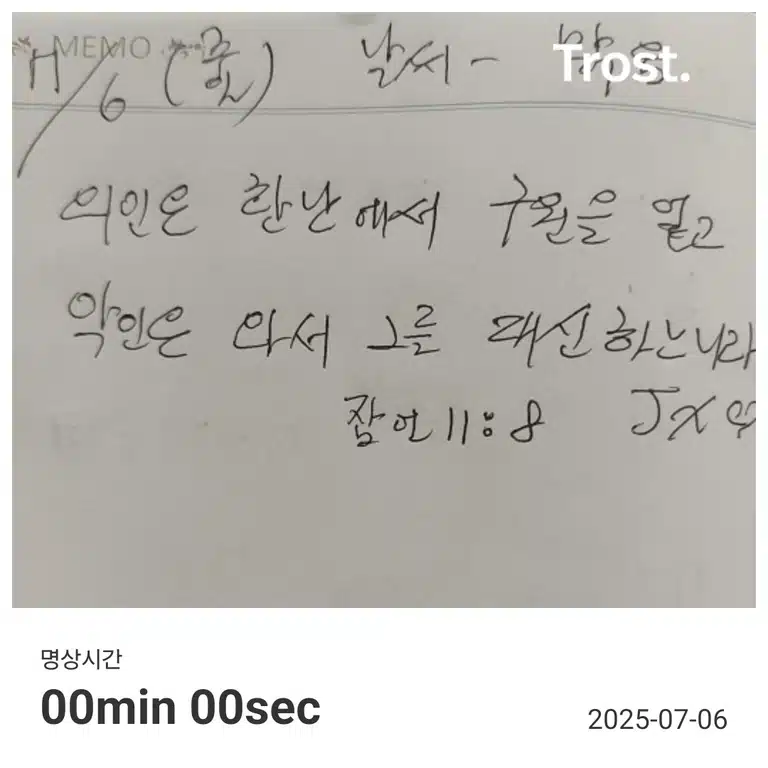 MEMO
11/6 (금) 날씨 - 맑음
Trost.
의인은 환난에서 구원을 얻고
악인은 와서 그를 대신하느니라
잠언 11:8 J
명상시간
00min 00sec
2025-07-06